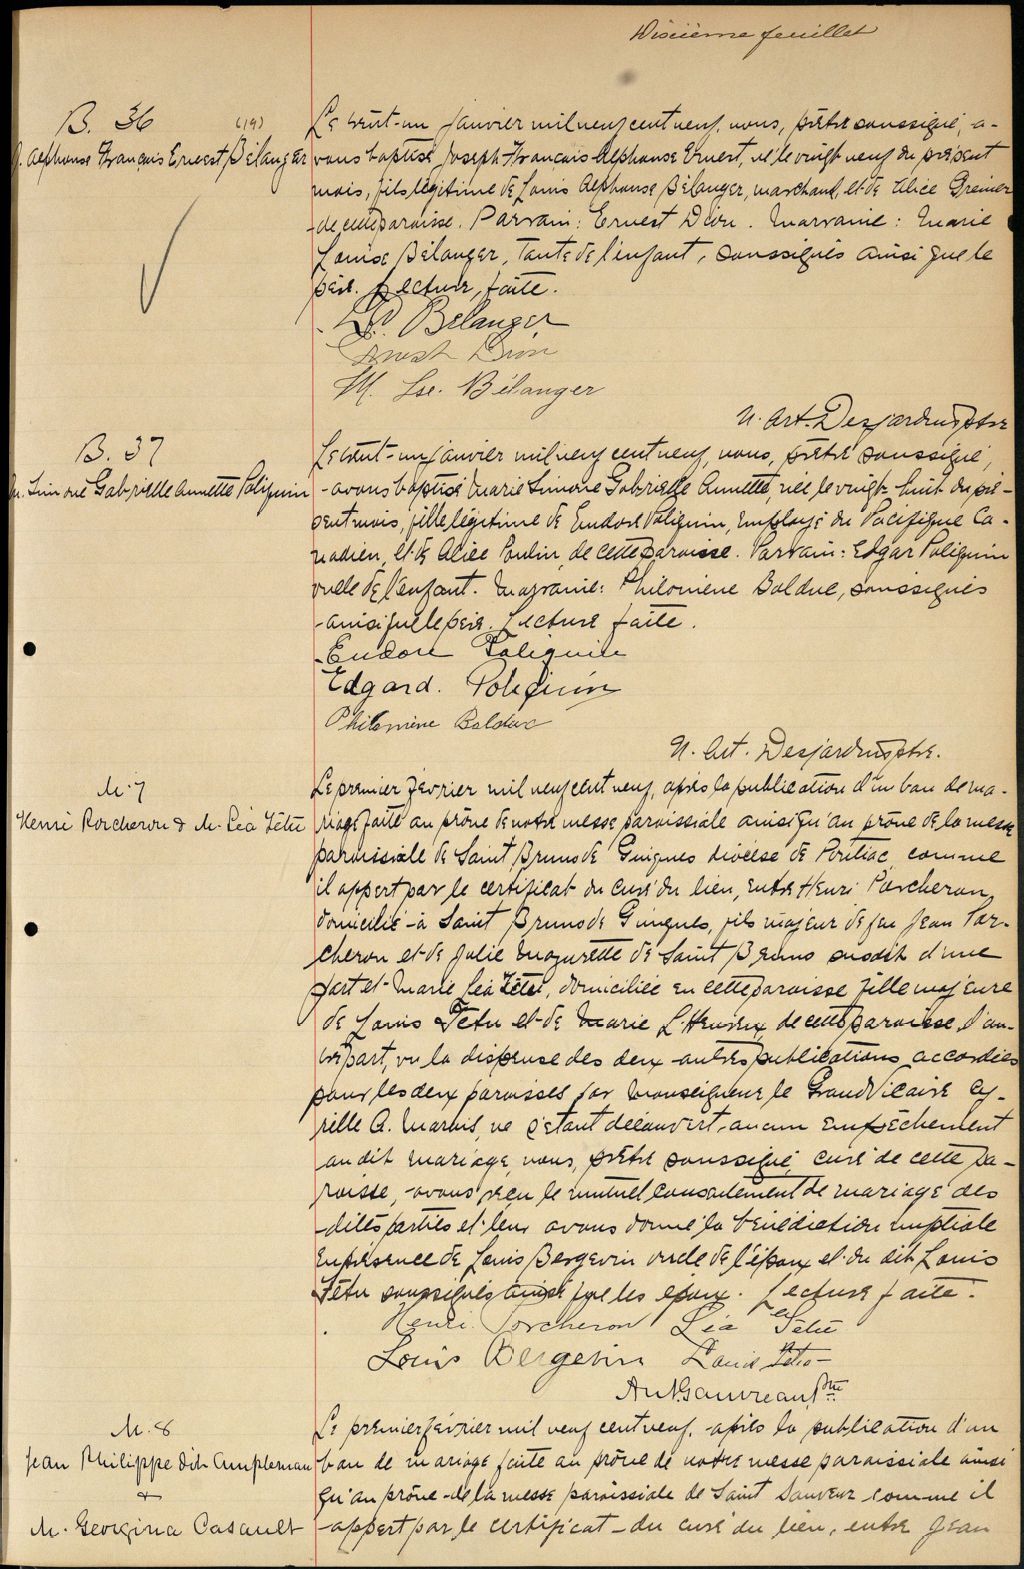 Dixième feuillet
B. 36
(19)
J. Alphonse François Ernest Bélanger
Le trent-un janvier mil neuf cent neuf, nous, prêtre soussigné, a-
vons baptisé Joseph François Alphonse Ernest, né le vingt neuf du présent
mois, fils légitime de Louis Alphonse Bélanger, marchand, et de Alice Grenier
de cette paroisse. Parrain: Ernest Dion. Marraine: Marie
Louise Bélanger, tante de l'enfant, soussignés ainsi que le
père. Lecture faite.
L. A. Bélanger
Ernest Dion
M. Lse. Bélanger
N. Art. Desjardins Ptre
B. 37
M. Simone Gabrielle Annette Poliquin
Le trent-un janvier mil neuf cent neuf, nous, prêtre soussigné,
avons baptisé Marie Simone Gabrielle Annette, née le vingt-huit du pré-
sent mois, fille légitime de Eudore Poliquin, employé du Pacifique Ca-
nadien, et de Alice Poulin, de cette paroisse. Parrain: Edgar Poliquin
oncle de l'enfant. Marraine: Philomène Bolduc, soussignés
ainsi que le père. Lecture faite.
Eudore Poliquin
Edgard. Poliquin
Philomène Bolduc
N. Art. Desjardins Ptre.
M. 7
Henri Porcheron & M. Léa Têtu
Le premier février mil neuf cent neuf, après la publication d'un ban de ma-
riage faite au prône de notre messe paroissiale ainsi qu'au prône de la messe
paroissiale de Saint Bruno de Guigues diocèse de Pontiac, comme
il appert par le certificat du curé du lieu, entre Henri Porcheron,
domicilié à Saint Bruno de Guigues, fils majeur de feu Jean Por-
cheron et de Julie Mazurette de Saint Bruno susdit d'une
part et Marie Léa Têtu, domiciliée en cette paroisse fille majeure
de Louis Têtu et de Marie L'Heureux, de cette paroisse, d'au-
tre part, vu la dispense des deux autres publications accordées
pour les deux paroisses par Monseigneur le Grand Vicaire Cy-
rille A. Marois, ne s'étant découvert aucun empêchement
au dit mariage, nous, prêtre soussigné, curé de cette pa-
roisse, avons reçu le mutuel consentement de mariage des
dites parties et leur avons donné la bénédiction nuptiale
en présence de Louis Bergevin oncle de l'époux et du dit Louis
Têtu soussignés ainsi que les époux. Lecture faite.
Henri Porcheron Léa Têtu
Louis Bergevin Louis Têtu
Ant. Gauvreau Ptre
M. 8
Jean Philippe dit Ampleman
&
M. Georgina Casault
Le premier février mil neuf cent neuf, après la publication d'un
ban de mariage faite au prône de notre messe paroissiale ainsi
qu'au prône de la messe paroissiale de Saint Sauveur comme il
appert par le certificat du curé du lieu, entre Jean